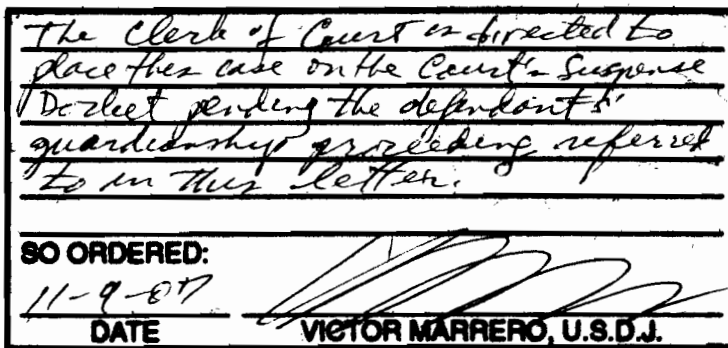 The Clerk of Court is directed to
place this case on the Court's Suspense
Docket pending the defendants'
guardianship proceeding referred
to in this letter.
SO ORDERED:
11-9-07
DATE VICTOR MARRERO, U.S.D.J.